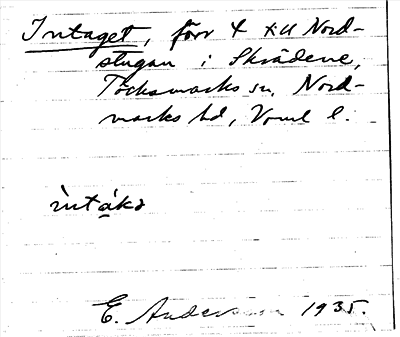 Intaget, förr t till Nord-
stugan i Skrädene,
Töcksmarks sn, Nord-
marks hd, Vrml l.
ìntákə
E. Andersson 1935.